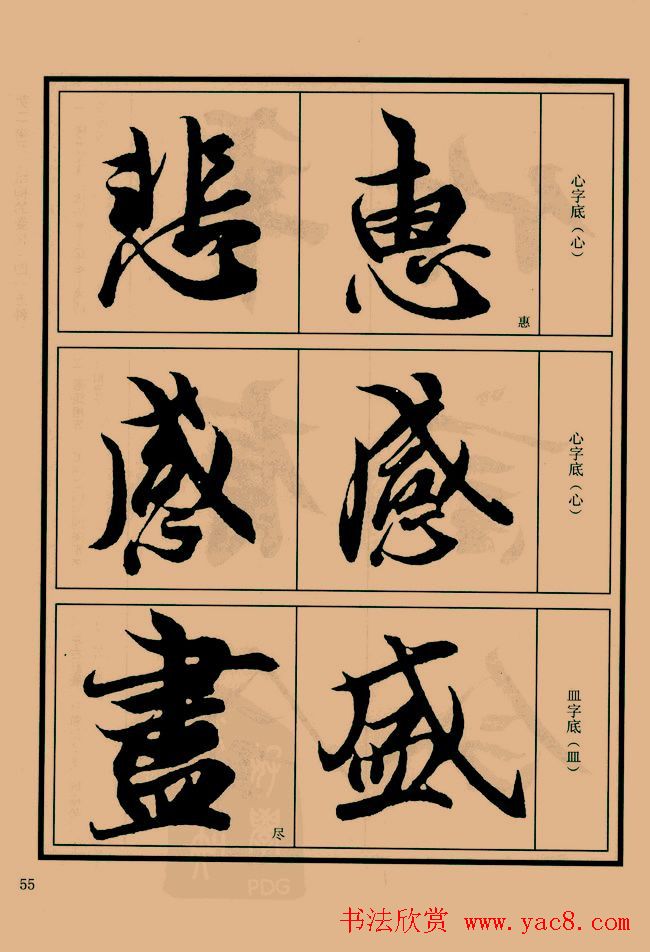 心字底（心）
恵
惠
悲
心字底（心）
感
感
皿字底（皿）
盛
盡
尽
55
PDG
书法欣赏 www.yac8.com